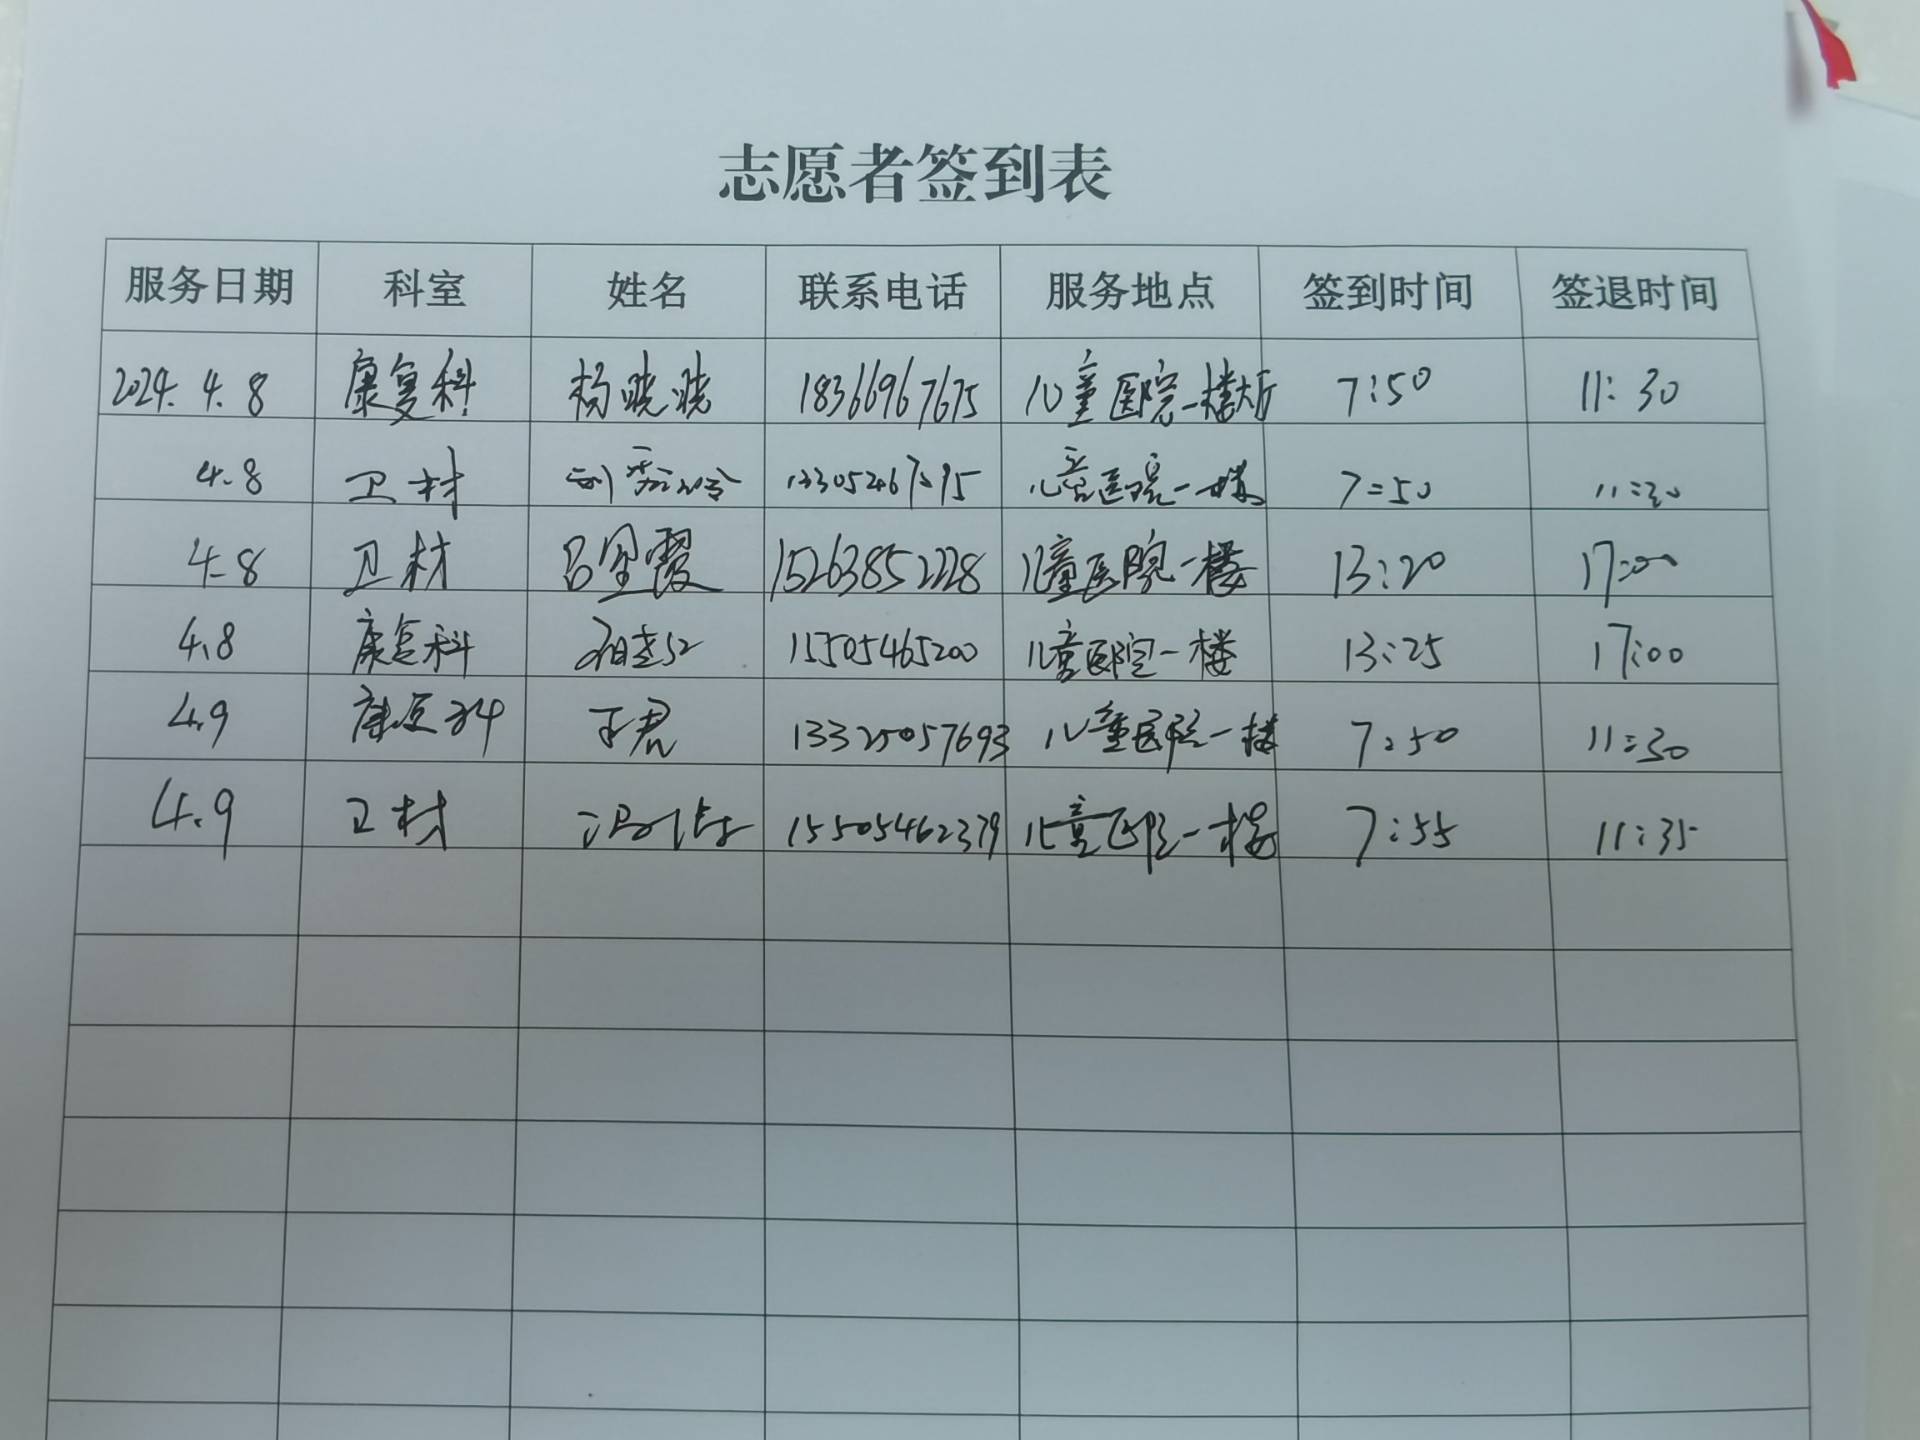 志愿者签到表
服务日期 科室 姓名 联系电话 服务地点 签到时间 签退时间
2024.4.8 康复科 杨晓晓 18366967675 儿童医院一楼大厅 7:50 11:30
4.8 卫材 儿童医院一楼 7:50 11:30
4.8 卫材 15263852228 儿童医院一楼 13:20 17:00
4.8 康复科 15505465200 儿童医院一楼 13:25 17:00
4.9 康复科 王君 13325057693 儿童医院一楼 7:50 11:30
4.9 卫材 15505462379 儿童医院一楼 7:55 11:35